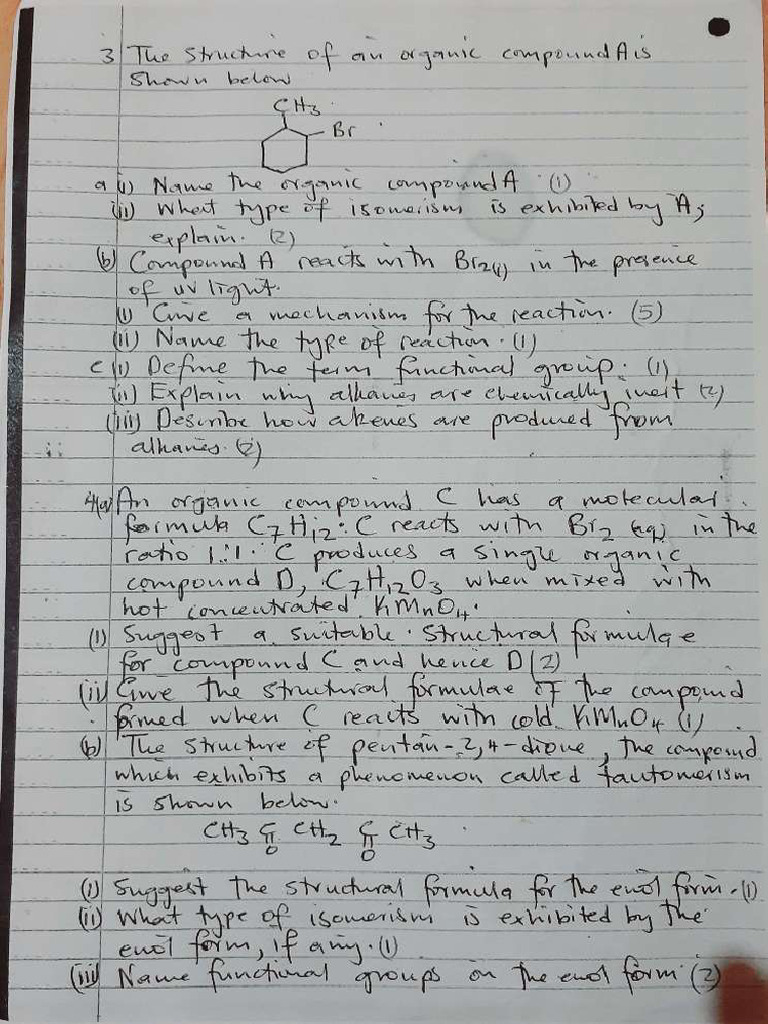 3 The structure of an organic compound A is
shown below
CH3
Br
a (i) Name the organic compound A (1)
(ii) What type of isomerism is exhibited by A;
explain. (2)
(b) Compound A reacts with Br2(l) in the presence
of uv light.
(i) Give a mechanism for the reaction. (5)
(ii) Name the type of reaction. (1)
c (i) Define the term functional group. (1)
(ii) Explain why alkanes are chemically inert (2)
(iii) Describe how alkenes are produced from
alkanes. (2)
4(a) An organic compound C has a molecular
formula C7H12. C reacts with Br2 (aq) in the
ratio 1:1. C produces a single organic
compound D, C7H12O3 when mixed with
hot concentrated KMnO4.
(i) Suggest a suitable structural formulae
for compound C and hence D (2)
(ii) Give the structural formulae of the compound
formed when C reacts with cold KMnO4 (1)
(b) The structure of pentan-2,4-dione, the compound
which exhibits a phenomenon called tautomerism
is shown below.
CH3 C CH2 C CH3
O O
(i) Suggest the structural formula for the enol form. (1)
(ii) What type of isomerism is exhibited by the
enol form, if any. (1)
(iii) Name functional groups on the enol form (2)